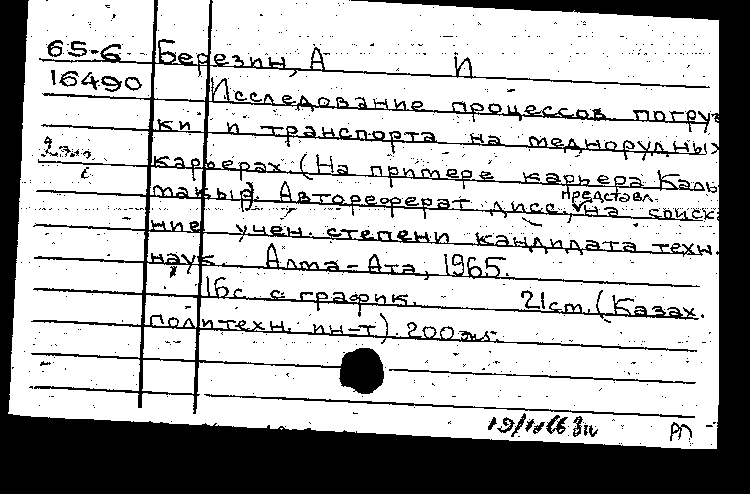 65-6 Березин, А И
16490
Исследование процессов погруз
ки и транспорта на меднорудных
2 экз.
карьерах. (На примере карьера Каль
макыр). Автореферат дисс., представл. на соиска
ние учен. степени кандидата техн.
наук. Алма-Ата, 1965.
16с с график. 21см. (Казах.
политехн. ин-т). 200 экз.
РП